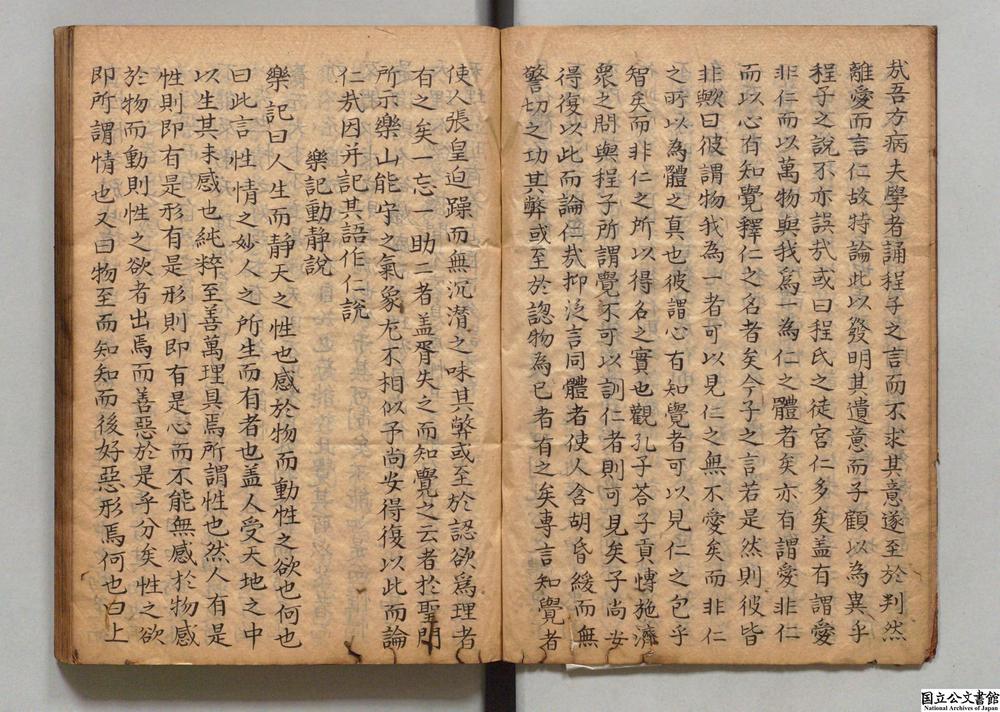 㢤吾方病夫學者誦程子之言而不求其意遂至於判然
離愛而言仁故特論此以發明其遺意而子顧以為異乎
程子之說不亦誤㢤或曰程氏之徒言仁多矣盖有謂愛
非仁而以萬物與我爲一為仁之體者矣亦有謂愛非仁
而以心有知覺釋仁之名者矣今子之言若是然則彼皆
非歟曰彼謂物我為一者可以見仁之無不愛矣而非仁
之所以為體之真也彼謂心有知覺者可以見仁之包乎
智矣而非仁之所以得名之實也觀孔子荅子貢愽施濟
衆之問與程子所謂覺不可以訓仁者則可見矣子尚安
得復以此而論仁㢤抑泛言同體者使人含胡昏緩而無
警切之功其弊或至於認物為已者有之矣專言知覺者
使人張皇迫躁而無沉潜之味其弊或至於認欲爲理者
有之矣一忘一助二者盖胥失之而知覺之云者於聖門
所示樂山能守之氣象尤不相似子尚安得復以此而論
仁㢤因并記其語作仁説
樂記動靜說
樂記曰人生而静天之性也感於物而動性之欲也何也
曰此言性情之妙人之所生而有者也盖人受天地之中
以生其未感也純粹至善萬理具焉所謂性也然人有是
性則即有是形有是形則即有是心而不能無感於物感
於物而動則性之欲者出焉而善惡於是乎分矣性之欲
即所謂情也又曰物至而知知而後好惡形焉何也曰上
国立公文書館
National Archives of Japan